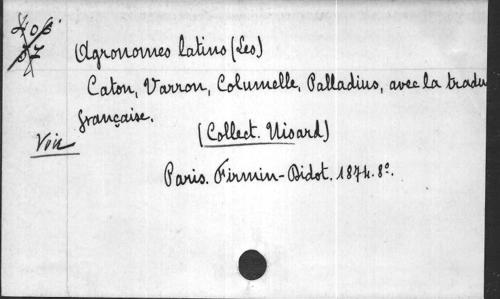 Agronomes latins (Les)
Caton, Varron, Columelle, Palladius, avec la tradu
française.
(Collect. Nisard)
Paris. Firmin-Didot. 1874. 8º.